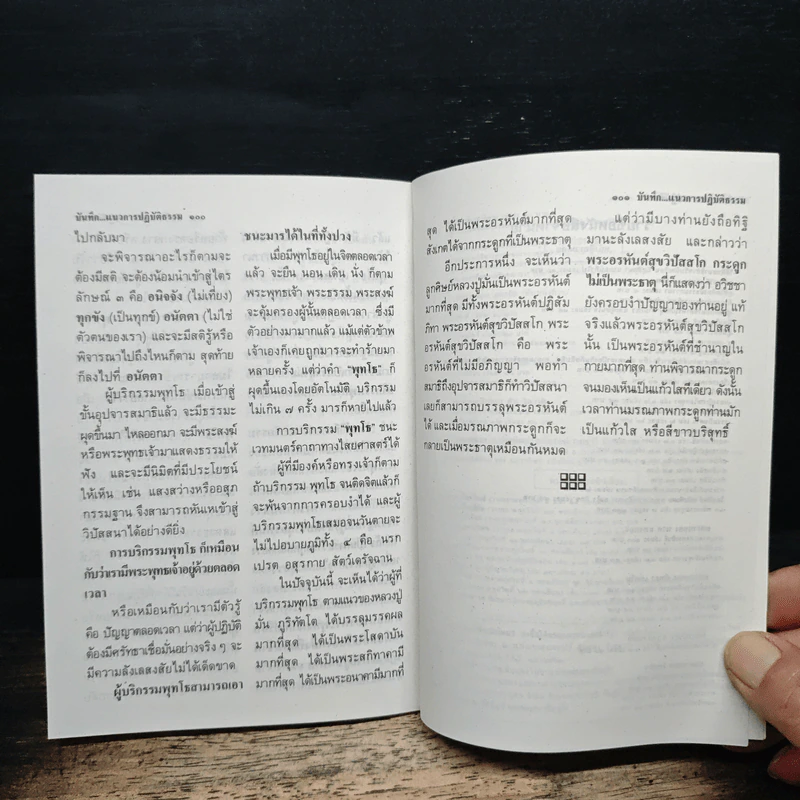 บันทึก...แนวการปฏิบัติธรรม ๑๐๐
ไปกลับมา
จะพิจารณาอะไรก็ตามจะ
ต้องมีสติ จะต้องน้อมนำเข้าสู่ไตร
ลักษณ์ ๓ คือ อนิจจัง (ไม่เที่ยง)
ทุกขัง (เป็นทุกข์) อนัตตา (ไม่ใช่
ตัวตนของเรา) และจะมีสติรู้หรือ
พิจารณาไปถึงไหนก็ตาม สุดท้าย
ก็ลงไปที่ อนัตตา
ผู้บริกรรมพุทโธ เมื่อเข้าสู่
ขั้นอุปจารสมาธิแล้ว จะมีธรรมะ
ผุดขึ้นมา ไหลออกมา จะมีพระสงฆ์
หรือพระพุทธเจ้ามาแสดงธรรมให้
ฟัง และจะมีนิมิตที่มีประโยชน์
ให้เห็น เช่น แสงสว่างหรืออสุภ
กรรมฐาน จึงสามารถหันเหเข้าสู่
วิปัสสนาได้อย่างดียิ่ง
การบริกรรมพุทโธ ก็เหมือน
กับว่าเรามีพระพุทธเจ้าอยู่ด้วยตลอด
เวลา
หรือเหมือนกับว่าเรามีตัวรู้
คือ ปัญญาตลอดเวลา แต่ว่าผู้ปฏิบัติ
ต้องมีศรัทธาเชื่อมั่นอย่างจริง ๆ จะ
มีความลังเลสงสัยไม่ได้เด็ดขาด
ผู้บริกรรมพุทโธสามารถเอา
ชนะมารได้ในที่ทั้งปวง
เมื่อมีพุทโธอยู่ในจิตตลอดเวลา
แล้ว จะยืน นอน เดิน นั่ง ก็ตาม
พระพุทธเจ้า พระธรรม พระสงฆ์
จะคุ้มครองผู้นั้นตลอดเวลา ซึ่งมี
ตัวอย่างมามากแล้ว แม้แต่ตัวข้าพ
เจ้าเองก็เคยถูกมารจะทำร้ายมา
หลายครั้ง แต่ว่าคำ "พุทโธ" ก็
ผุดขึ้นเองโดยอัตโนมัติ บริกรรม
ไม่เกิน ๗ ครั้ง มารก็หายไปแล้ว
การบริกรรม "พุทโธ" ชนะ
เวทมนตร์คาถาทางไสยศาสตร์ได้
ผู้ที่มีองค์หรือทรงเจ้าก็ตาม
ถ้าบริกรรม พุทโธ จนติดจิตแล้วก็
จะพ้นจากการครอบงำได้ และผู้
บริกรรมพุทโธเสมอจนวันตายจะ
ไม่ไปอบายภูมิทั้ง ๔ คือ นรก
เปรต อสุรกาย สัตว์เดรัจฉาน
ในปัจจุบันนี้ จะเห็นได้ว่าผู้ที่
บริกรรมพุทโธ ตามแนวของหลวงปู่
มั่น ภูริทัตโต ได้บรรลุมรรคผล
มากที่สุด ได้เป็นพระโสดาบัน
มากที่สุด ได้เป็นพระสกิทาคามี
มากที่สุด ได้เป็นพระอนาคามีมากที่
๑๐๑ บันทึก...แนวการปฏิบัติธรรม
สุด ได้เป็นพระอรหันต์มากที่สุด
สังเกตได้จากกระดูกที่เป็นพระธาตุ
อีกประการหนึ่ง จะเห็นว่า
ลูกศิษย์หลวงปู่มั่นเป็นพระอรหันต์
มากที่สุด มีทั้งพระอรหันต์ปฏิสัม
ภิทา พระอรหันต์สุขวิปัสสโก พระ
อรหันต์สุขวิปัสสโก คือ พระ
อรหันต์ที่ไม่มีอภิญญา พอทำ
สมาธิถึงอุปจารสมาธิก็ทำวิปัสสนา
เลยก็สามารถบรรลุพระอรหันต์
ได้ และเมื่อมรณภาพกระดูกก็จะ
กลายเป็นพระธาตุเหมือนกันหมด
แต่ว่ามีบางท่านยังถือทิฐิ
มานะลังเลสงสัย และกล่าวว่า
พระอรหันต์สุขวิปัสสโก กระดูก
ไม่เป็นพระธาตุ นี่ก็แสดงว่า อวิชชา
ยังครอบงำปัญญาของท่านอยู่ แท้
จริงแล้วพระอรหันต์สุขวิปัสสโก
นั้น เป็นพระอรหันต์ที่ชำนาญใน
กายมากที่สุด ท่านพิจารณากระดูก
จนมองเห็นเป็นแก้วใสทีเดียว ดังนั้น
เวลาท่านมรณภาพกระดูกท่านมัก
เป็นแก้วใส หรือสีขาวบริสุทธิ์